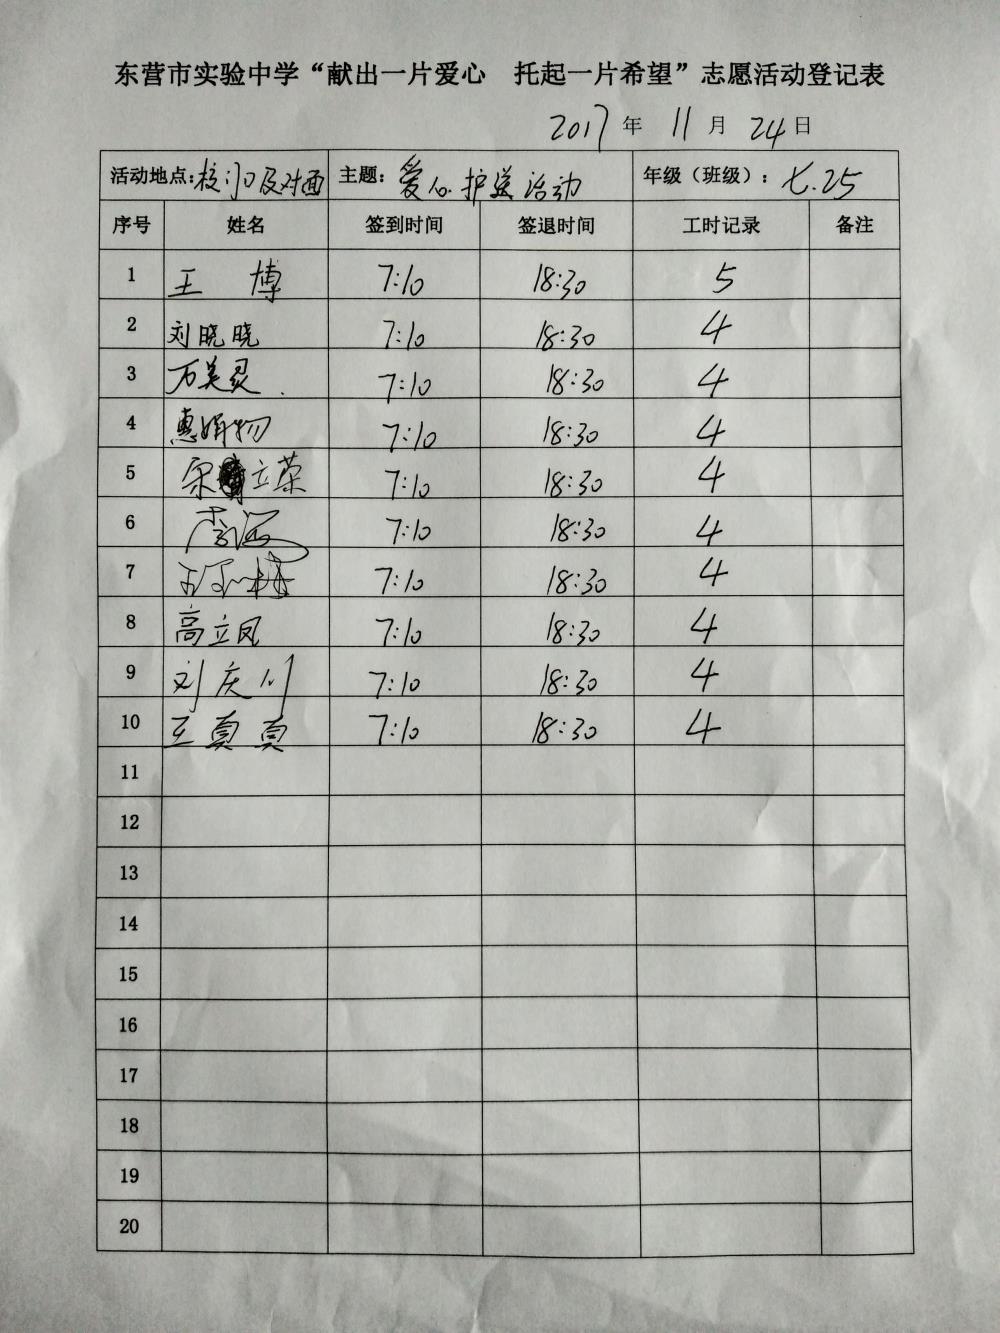 东营市实验中学“献出一片爱心 托起一片希望”志愿活动登记表
2017年 11月 24日
活动地点:校门口及对面 主题:爱心护送活动 年级（班级）:七.25
序号 姓名 签到时间 签退时间 工时记录 备注
1 王博 7:10 18:30 5
2 刘晓晓 7:10 18:30 4
3 万美灵 7:10 18:30 4
4 惠娟 7:10 18:30 4
5 宋立荣 7:10 18:30 4
6 李 7:10 18:30 4
7 7:10 18:30 4
8 高立凤 7:10 18:30 4
9 刘庆川 7:10 18:30 4
10 王真真 7:10 18:30 4
11
12
13
14
15
16
17
18
19
20